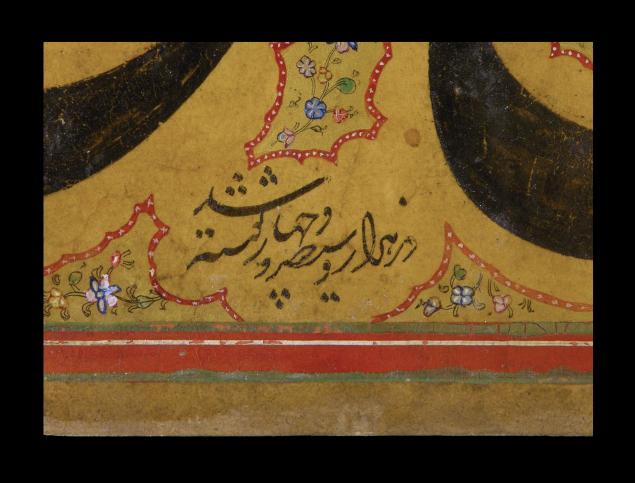 در هزار و سیصد و چهار نوشته شد